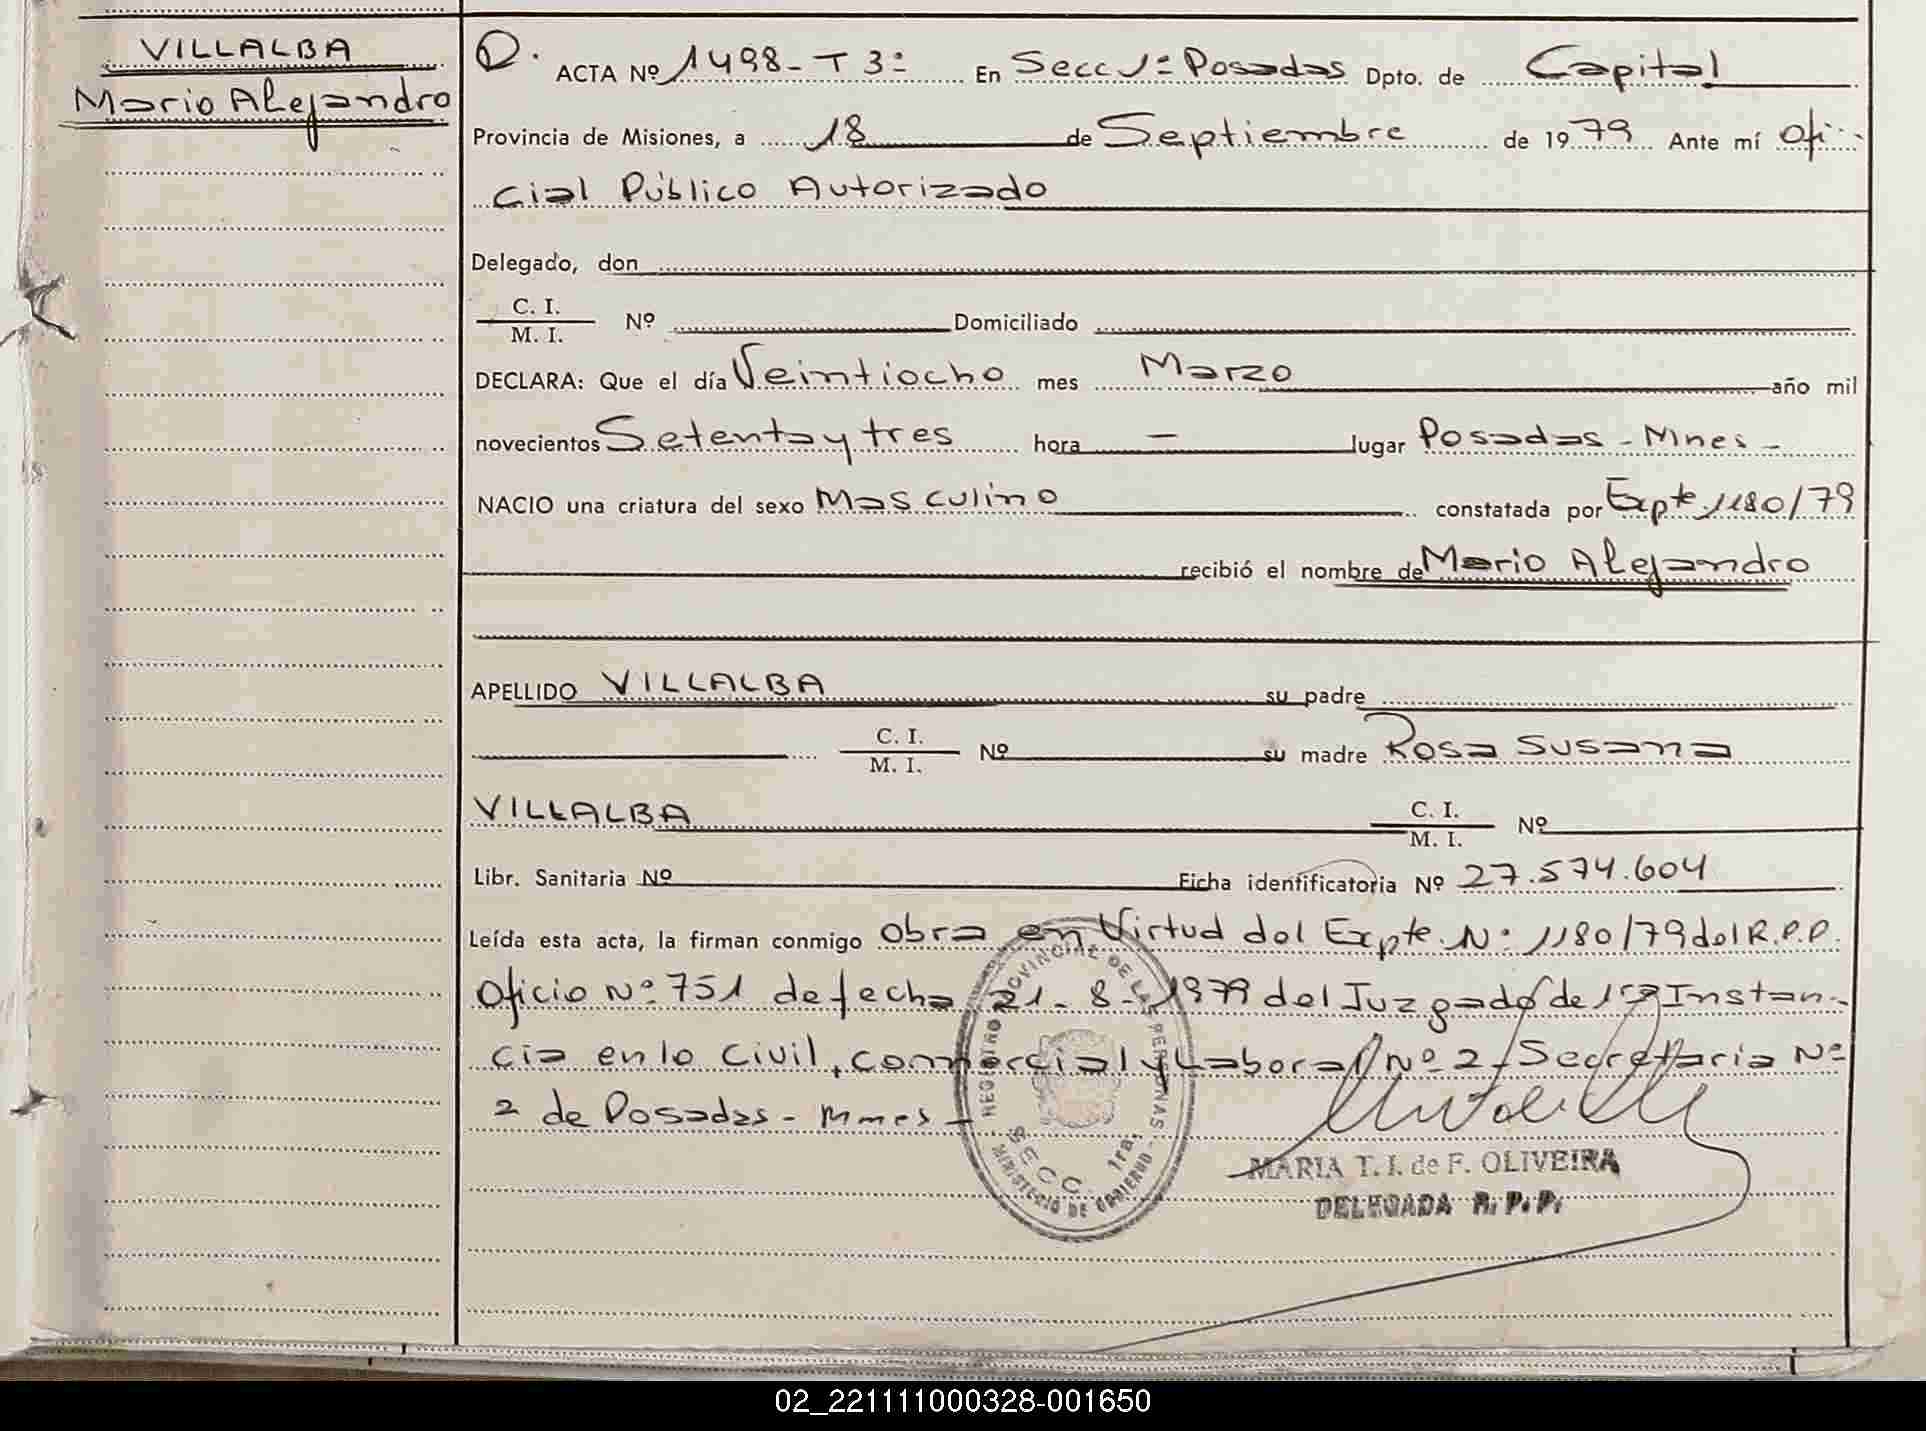 VILLALBA
Mario Alejandro
D. ACTA Nº 1498 - T 3º En Secc 1ª Posadas Dpto. de Capital
Provincia de Misiones, a 18 de Septiembre de 1979 Ante mí Ofi-
cial Público Autorizado
Delegado, don
C. I.
M. I. Nº Domiciliado
DECLARA: Que el día Veintiocho mes Marzo año mil
novecientos Setenta y tres hora — lugar Posadas - Mnes -
NACIO una criatura del sexo Masculino constatada por Expte. 1180/79
recibió el nombre de Mario Alejandro
APELLIDO VILLALBA su padre
C. I.
M. I. Nº su madre Rosa Susana
VILLALBA C. I.
M. I. Nº
Libr. Sanitaria Nº Ficha identificatoria Nº 27.574.604
Leída esta acta, la firman conmigo obra en Virtud del Expte. Nº 1180/79 del R.P.P.
Oficio Nº 751 de fecha 21 - 8 - 1979 del Juzgado de 1ra Instan-
cia en lo Civil, comercial y Laboral Nº 2 - Secretaria Nº
2 de Posadas - Mnes -
REGISTRO PROVINCIAL DE LAS PERSONAS
SECC. 1ra.
MINISTERIO DE GOBIERNO
MARIA T. I. de F. OLIVEIRA
DELEGADA R. P. P.
02_221111000328-001650